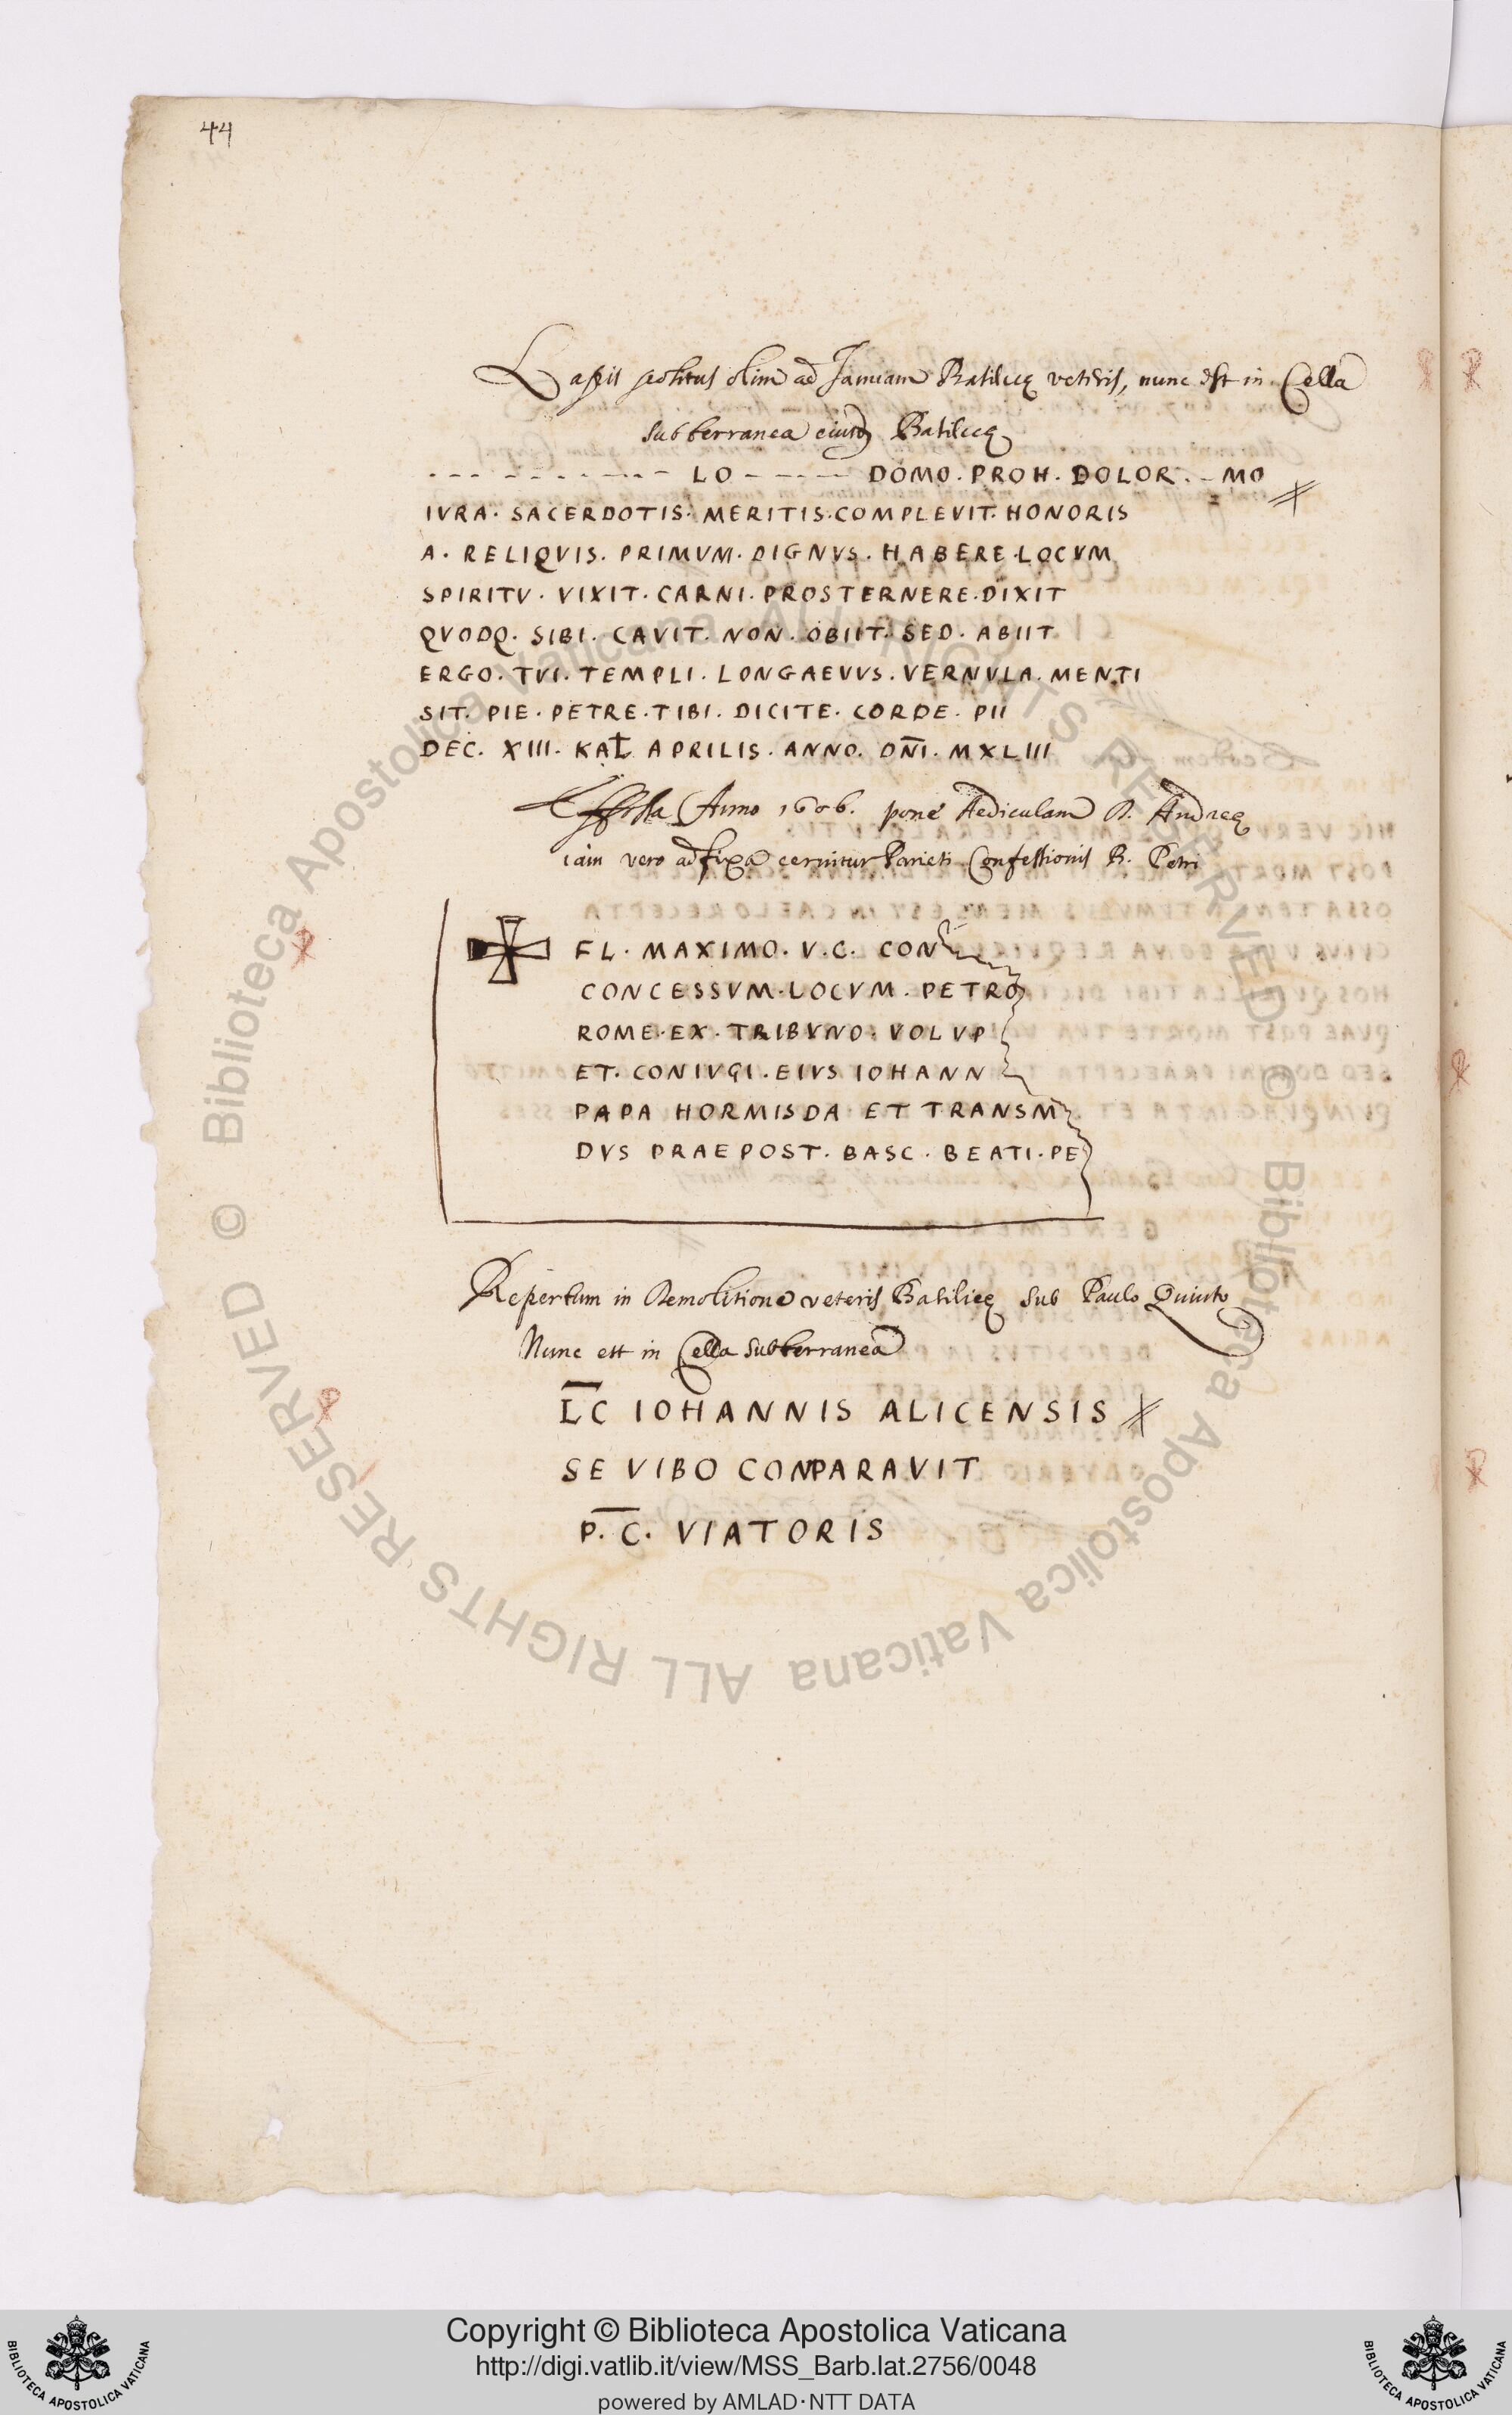 44
Lapis positus olim ad Januam Basilicę veteris, nunc est in Cella
subterranea eiusd Basilicę
LO DOMO. PROH. DOLOR. MO
IVRA. SACERDOTIS. MERITIS. COMPLEVIT. HONORIS
A. RELIQVIS. PRIMVM. DIGNVS. HABERE. LOCVM
SPIRITV. VIXIT. CARNI. PROSTERNERE. DIXIT
QVODQ. SIBI. CAVIT. NON. OBIIT. SED. ABIIT
ERGO. TVI. TEMPLI. LONGAEVVS. VERNVLA. MENTI
SIT. PIE. PETRE. TIBI. DICITE. CORDE. PII
DEC. XIII. KAL APRILIS. ANNO. DÑI. MXLIII
Effossa Anno 1606. pone Aediculam S. Andreę
iam vero adfixa cernitur Parieti Confessionis B. Petri
FL. MAXIMO. V. C. CON
CONCESSVM. LOCVM. PETRO
ROME. EX. TRIBVNO. VOLVP
ET. CONIVGI. EIVS IOHANN
PAPA HORMISDA ET TRANSM
DVS PRAEPOST. BASC. BEATI. PE
Repertum in Demolitione veteris Basilicę sub Paulo Quinto
Nunc est in Cella subterranea
L̅C IOHANNIS ALICENSIS
SE VIBO CONPARAVIT
P. C. VIATORIS
© Biblioteca Apostolica Vaticana ALL RIGHTS RESERVED
© Biblioteca Apostolica Vaticana ALL RIGHTS RESERVED
Copyright © Biblioteca Apostolica Vaticana
http://digi.vatlib.it/view/MSS_Barb.lat.2756/0048
powered by AMLAD·NTT DATA
BIBLIOTECA APOSTOLICA VATICANA
BIBLIOTECA APOSTOLICA VATICANA